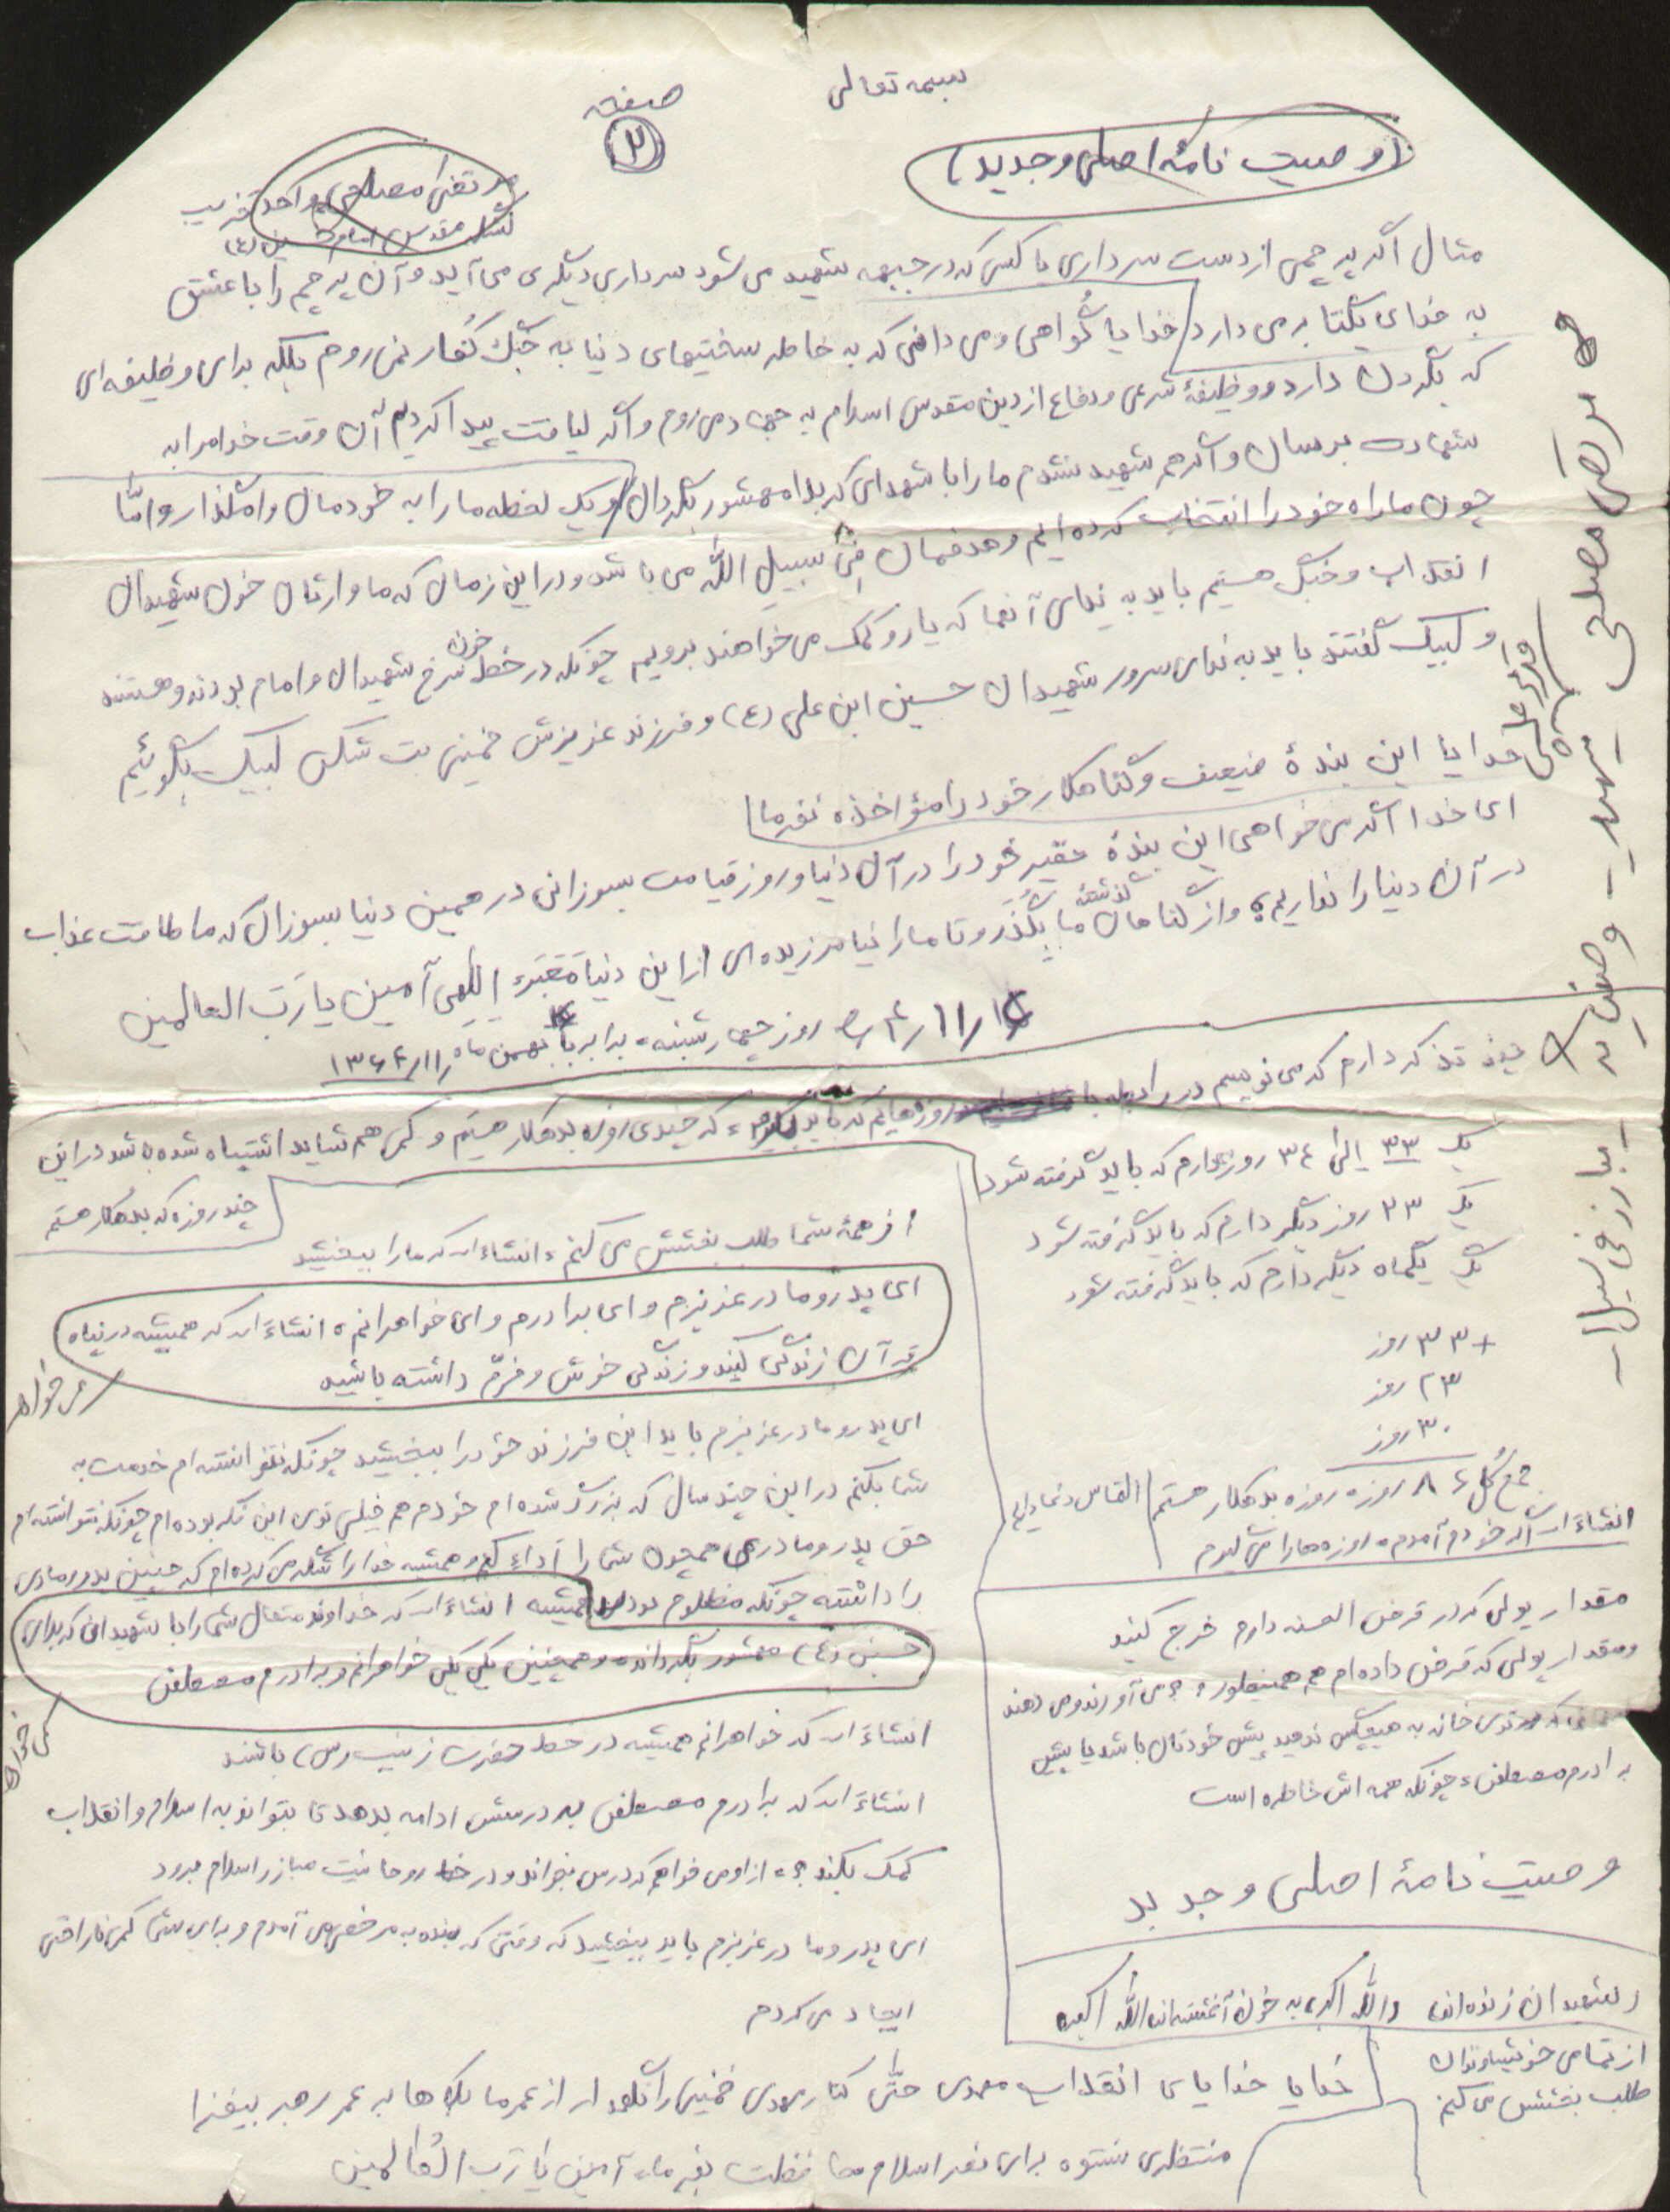 بسمه تعالی
صفحه
۲
(وصیت نامهٔ اصلی و جدید)
مرتضی مصلحی واحد تخریب
لشکر مقدس امام حسین (ع)
مثال اگر پرچمی از دست سرداری یا کسی که در جبهه شهید می شود سرداری دیگری می آید و آن پرچم را با عشق
به خدای یکتا بر می دارد خدایا گواهی و می دانی که به خاطر سختیهای دنیا به جنگ کفار نمی روم بلکه برای وظیفه ای
که بگردن دارد و وظیفهٔ شرعی و دفاع از دین مقدس اسلام به جهاد می روم و اگر لیاقت پیدا کردیم آن وقت خدا مرا به
شهادت برسان و اگر هم شهید نشدم ما را با شهدای کربلا محشور بگردان و یک لحظه ما را به خودمان وامگذار و امّا
چون ما راه خود را انتخاب کرده ایم و هدفمان فی سبیل اللّه می باشد و در این زمان که ما وارثان خون شهیدان
انقلاب و جنگ هستیم باید به ندای آنها که یار و کمک می خواهند برویم چونکه در خط خون سرخ شهیدان و امام بودند و هستند
و لبیک گفتند باید به ندای سرور شهیدان حسین ابن علی (ع) و فرزند عزیزش خمینی بت شکن لبیک بگوئیم
خدایا این بندهٔ ضعیف و گناهکار خود را مؤاخذه نفرما
ای خدا اگر می خواهی این بندهٔ حقیر خود را در آن دنیا و روز قیامت بسوزانی در همین دنیا بسوزان که ما طاقت عذاب
در آن دنیا را نداریم و از گناهان گذشته ما بگذر و تا ما را نیامرزیده ای از این دنیا مَبَر الهی آمین یا رَبّ العالمین
روز چهارشنبه برابر با بهمن ماه
چند تذکر دارم که می نویسم در رابطه با روزه هایم که باید بگیرم که چندی روزه بدهکار هستم و کمی هم شاید اشتباه شده باشد در این
چند روزه که بدهکار هستم
یک ۳۳ الی ۳۴ روز دارم که باید گرفته شود
یک ۲۳ روز دیگر دارم که باید گرفته شود
یک یکماه دیگر دارم که باید گرفته شود
+ ۳۳ روز
۲۳ روز
۳۰ روز
جمع کُل ۸۶ روزه روزه بدهکار هستم التماس دعا دارم
انشاءا... اگر خودم آمدم روزه ها را می گیرم
مقدار پولی که در قرض الحسنه دارم خرج کنید
و مقدار پولی که قرض داده ام هم همینطور می آورند و می دهند
توی خانه به هیچکس ندهید پیش خودتان باشد یا پیش
برادرم مصطفی چونکه همه اش خاطره است
وصیت نامهٔ اصلی و جدید
شهیدان زنده اند اللّه اکبر به خون آغشته اند اللّه اکبر
از تمامی خویشاوندان
طلب بخشش می کنم
از همهٔ شما طلب بخشش می کنم انشاءا... که ما را ببخشید
ای پدر و مادر عزیزم و ای برادرم و ای خواهرانم انشاءا... که همیشه در پناه
قرآن زندگی کنید و زندگی خوش و خرّم داشته باشید
ای پدر و مادر عزیزم باید این فرزند خود را ببخشید چونکه نتوانسته ام خدمت به
شما بکنم در این چند سال که بزرگ شده ام خودم هم خیلی توی این فکر بوده ام چونکه نتوانسته ام
حق پدر و مادری همچون شما را اَداء کنم و همیشه خدا را شکر می کرده ام که چنین پدر و مادری
را داشته چونکه مظلوم بودند همیشه انشاءا... که خداوند متعال شما را با شهیدانی کربلای
حسین (ع) محشور بگرداند و همچنین یکی یکی خواهرانم و برادرم مصطفی
انشاءا... که خواهرانم همیشه در خط حضرت زینب (س) باشند
انشاءا... که برادرم مصطفی به درسش ادامه بدهد تا بتواند به اسلام و انقلاب
کمک بکند از او می خواهم که درس بخواند و در خط روحانیت مبارز اسلام برود
ای پدر و مادر عزیزم باید ببخشید که وقتی که بنده به مرخصی می آمدم و برای شما کمی ناراحتی
ایجاد می کردم
خدایا خدایا تا انقلاب مهدی حتّی کنار مهدی خمینی را نگهدار از عمر ما بکاه و به عمر رهبر بیفزا
منتظری نستوه برای نصر اسلام محافظت بفرما آمین یا ربّ العالمین
مرتضی مصلحی
شهید
وصیت
مبارز فی سبیل ا...